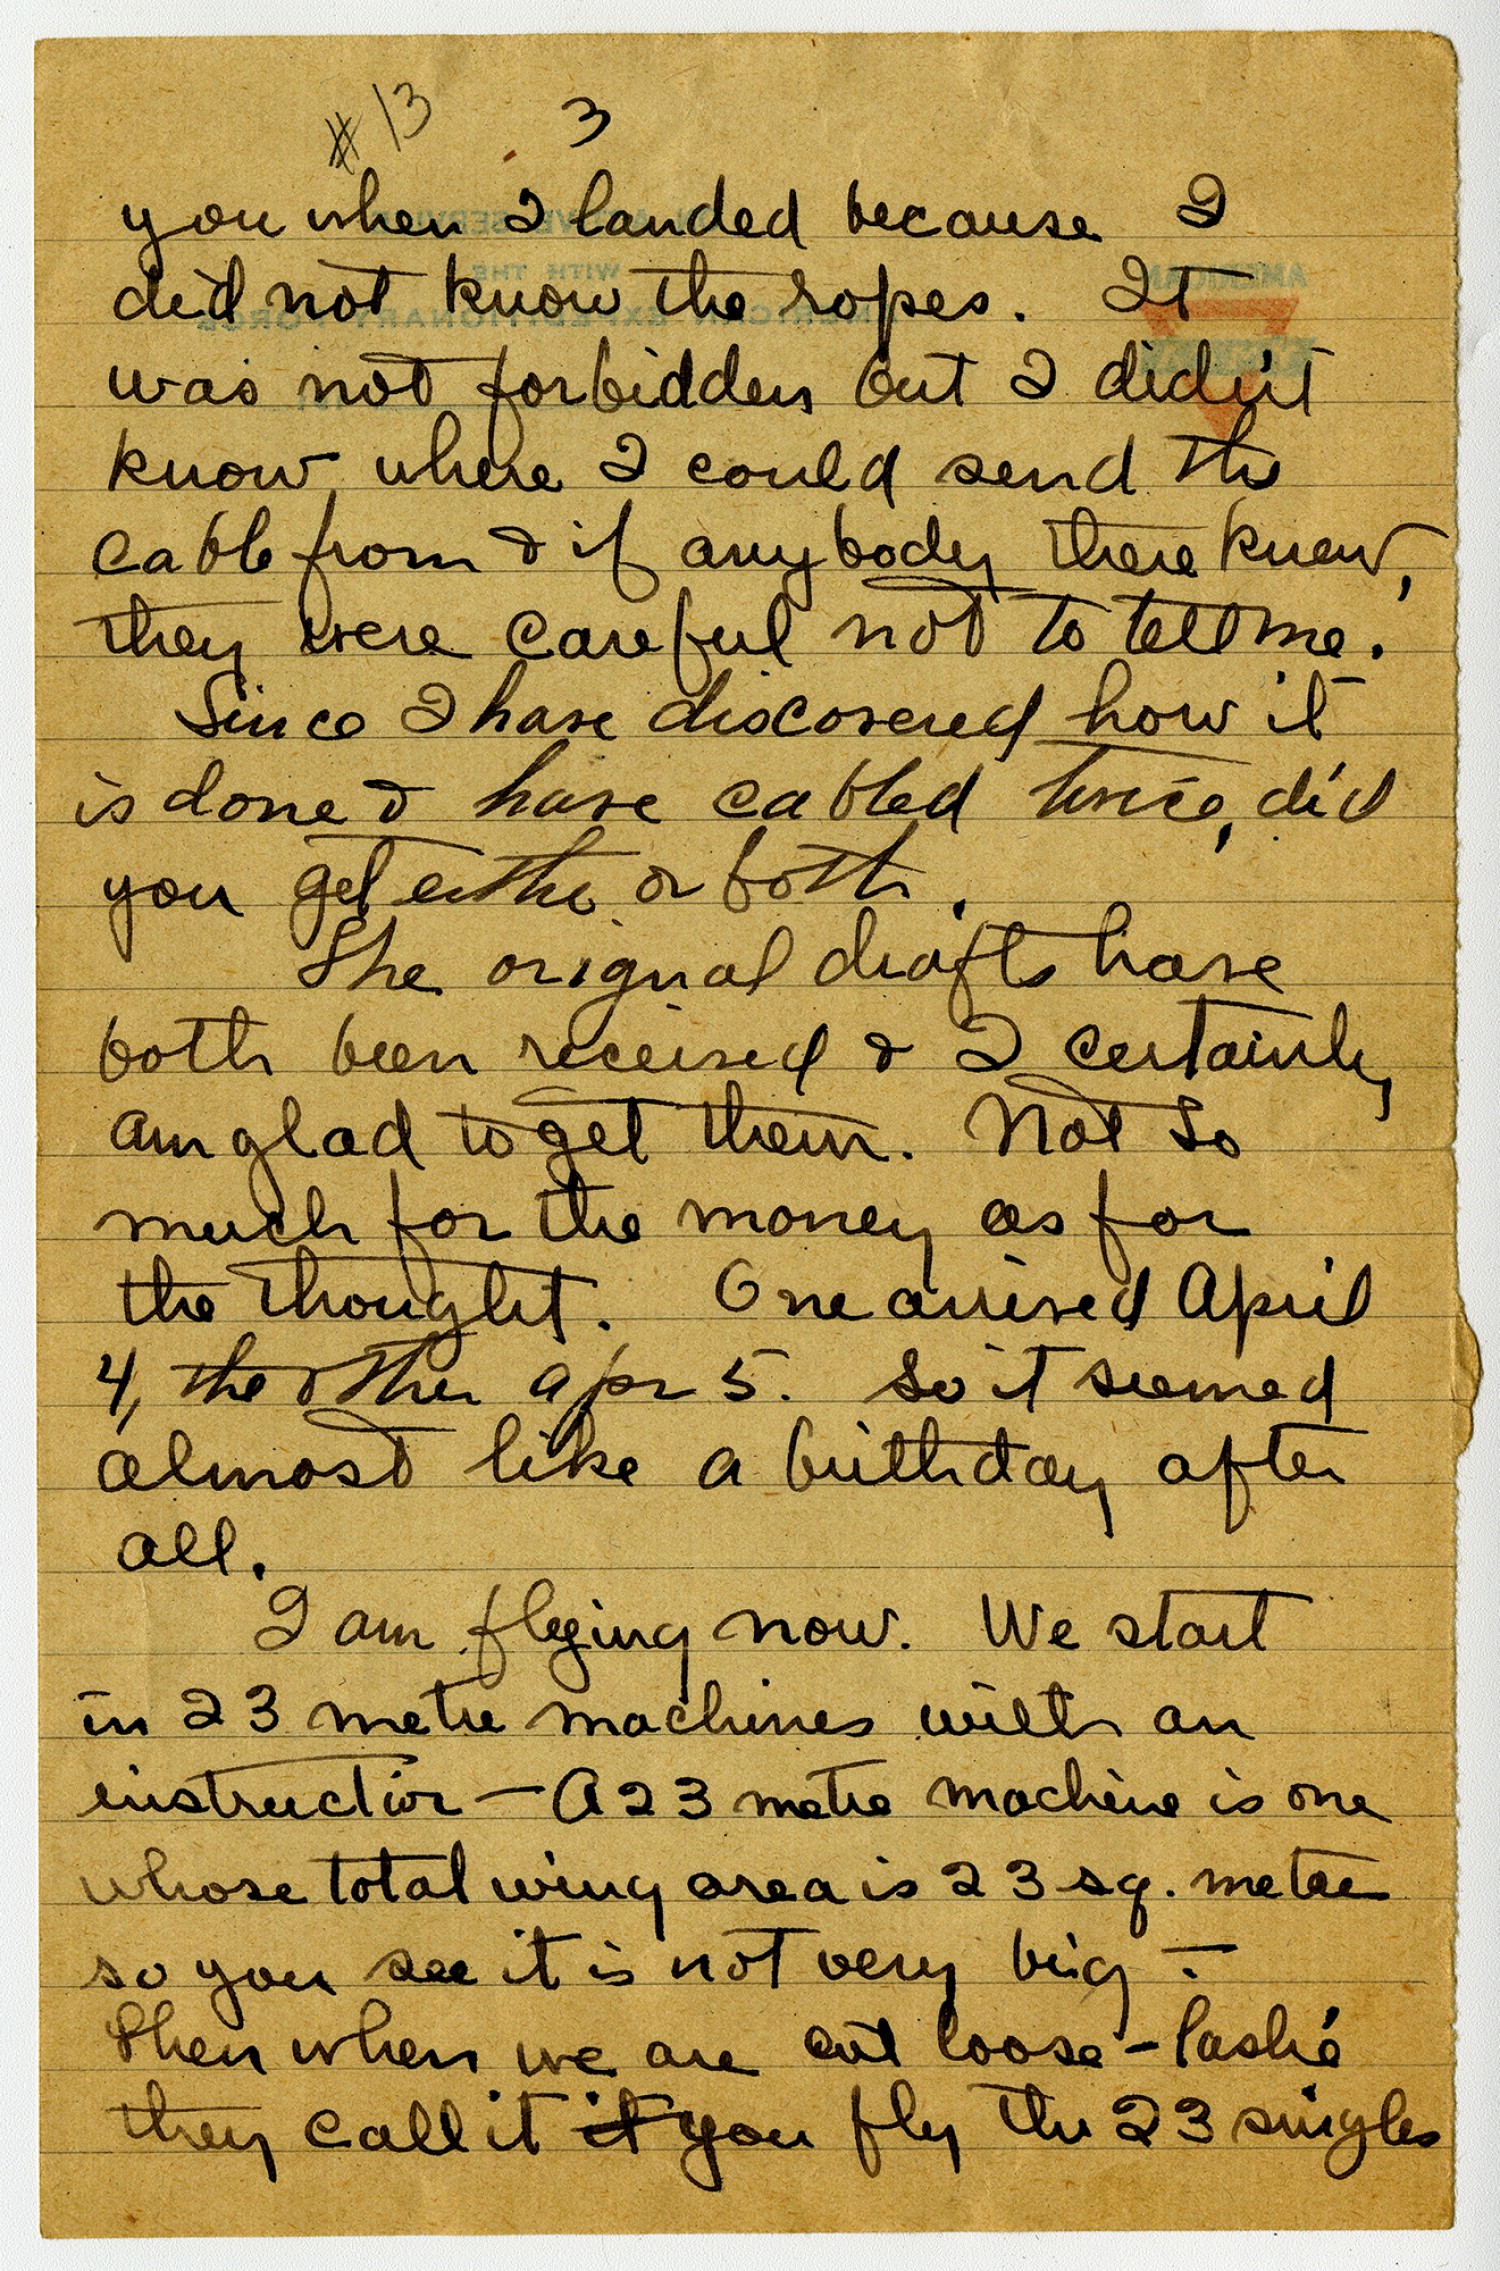 #13 3
you when I landed because I
did not know the ropes. It
was not forbidden but I didn't
know where I could send the
cable from & if anybody there knew,
they were careful not to tell me.
Since I have discovered how it
is done & have cabled twice, did
you get either or both.
The orignal drafts have
both been received & I certainly
am glad to get them. Not so
much for the money as for
the thought. One arrived April
4, the other Apr 5. So it seemed
almost like a birthday after
all.
I am flying now. We start
in 23 metre machines with an
instructior — A 23 metre machine is one
whose total wing area is 23 sq. metre
so you see it is not very big —
Then when we are cut loose - lashé
they call it it you fly the 23 singles